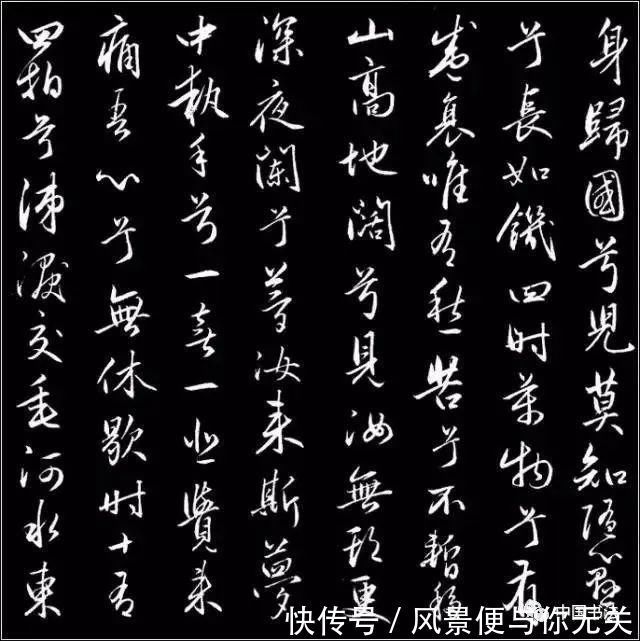 身歸國兮兒莫知隨心懸
兮長如饑四时萬物兮有
盛衰唯有愁苦兮不暫移
山高地闊兮見汝無期更
深夜闌兮夢汝来斯夢
中執手兮一喜一悲覺来
痛吾心兮無休歇时十有
四拍兮涕淚交垂河水東
中国书法
快传号 / 风景便与你无关